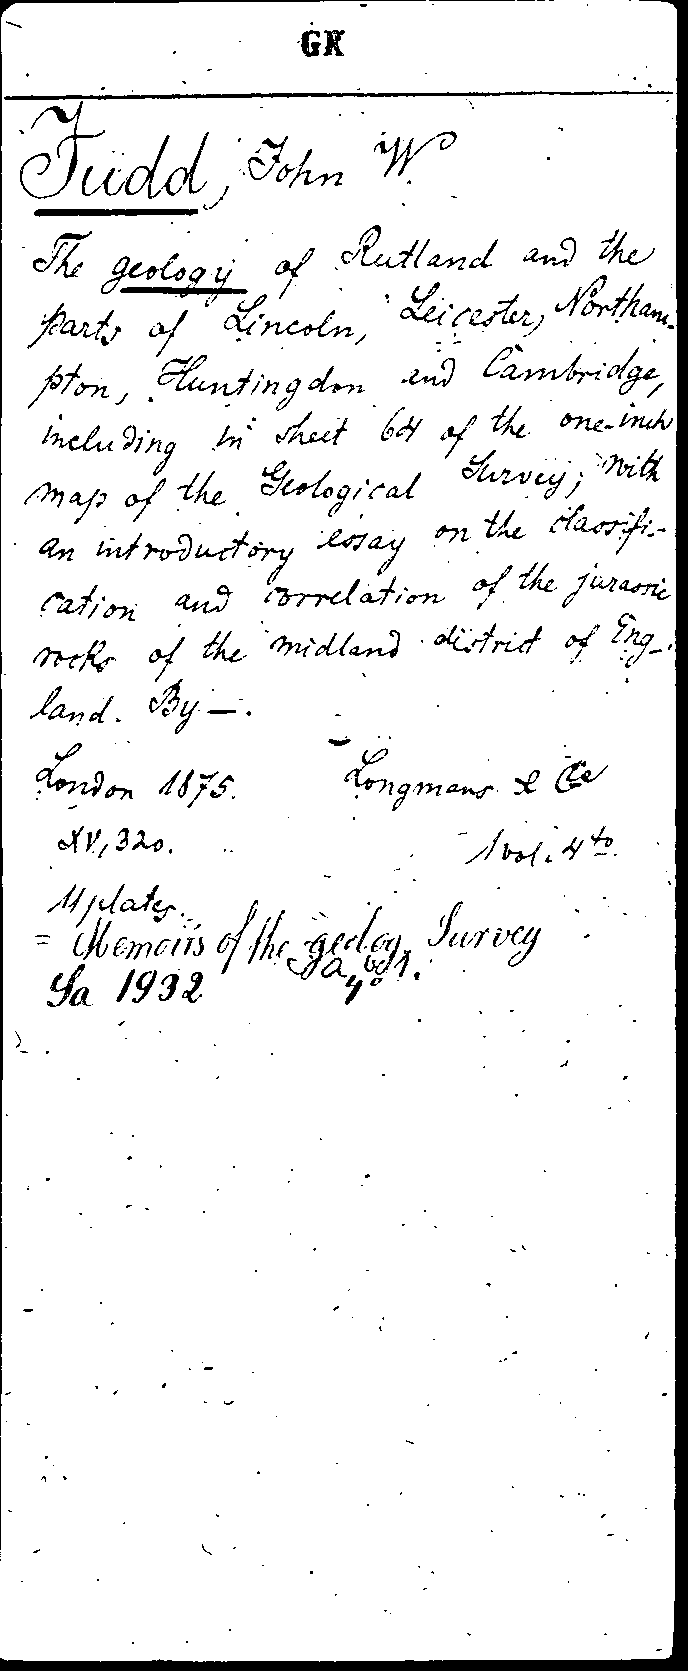 GK
Judd, John W.
The geology of Rutland and the
parts of Lincoln, Leicester, Northam-
pton, Huntingdon and Cambridge,
including in sheet 64 of the one-inch
map of the Geological Survey; with
an introductory essay on the classifi-
cation and correlation of the jurassic
rocks of the midland district of Eng-
land. By —.
London 1875. Longmans & Co
XV, 320. 1 vol. 4to.
11 plates.
= Memoirs of the geolog. Survey
Sa 4°
Sa 1932